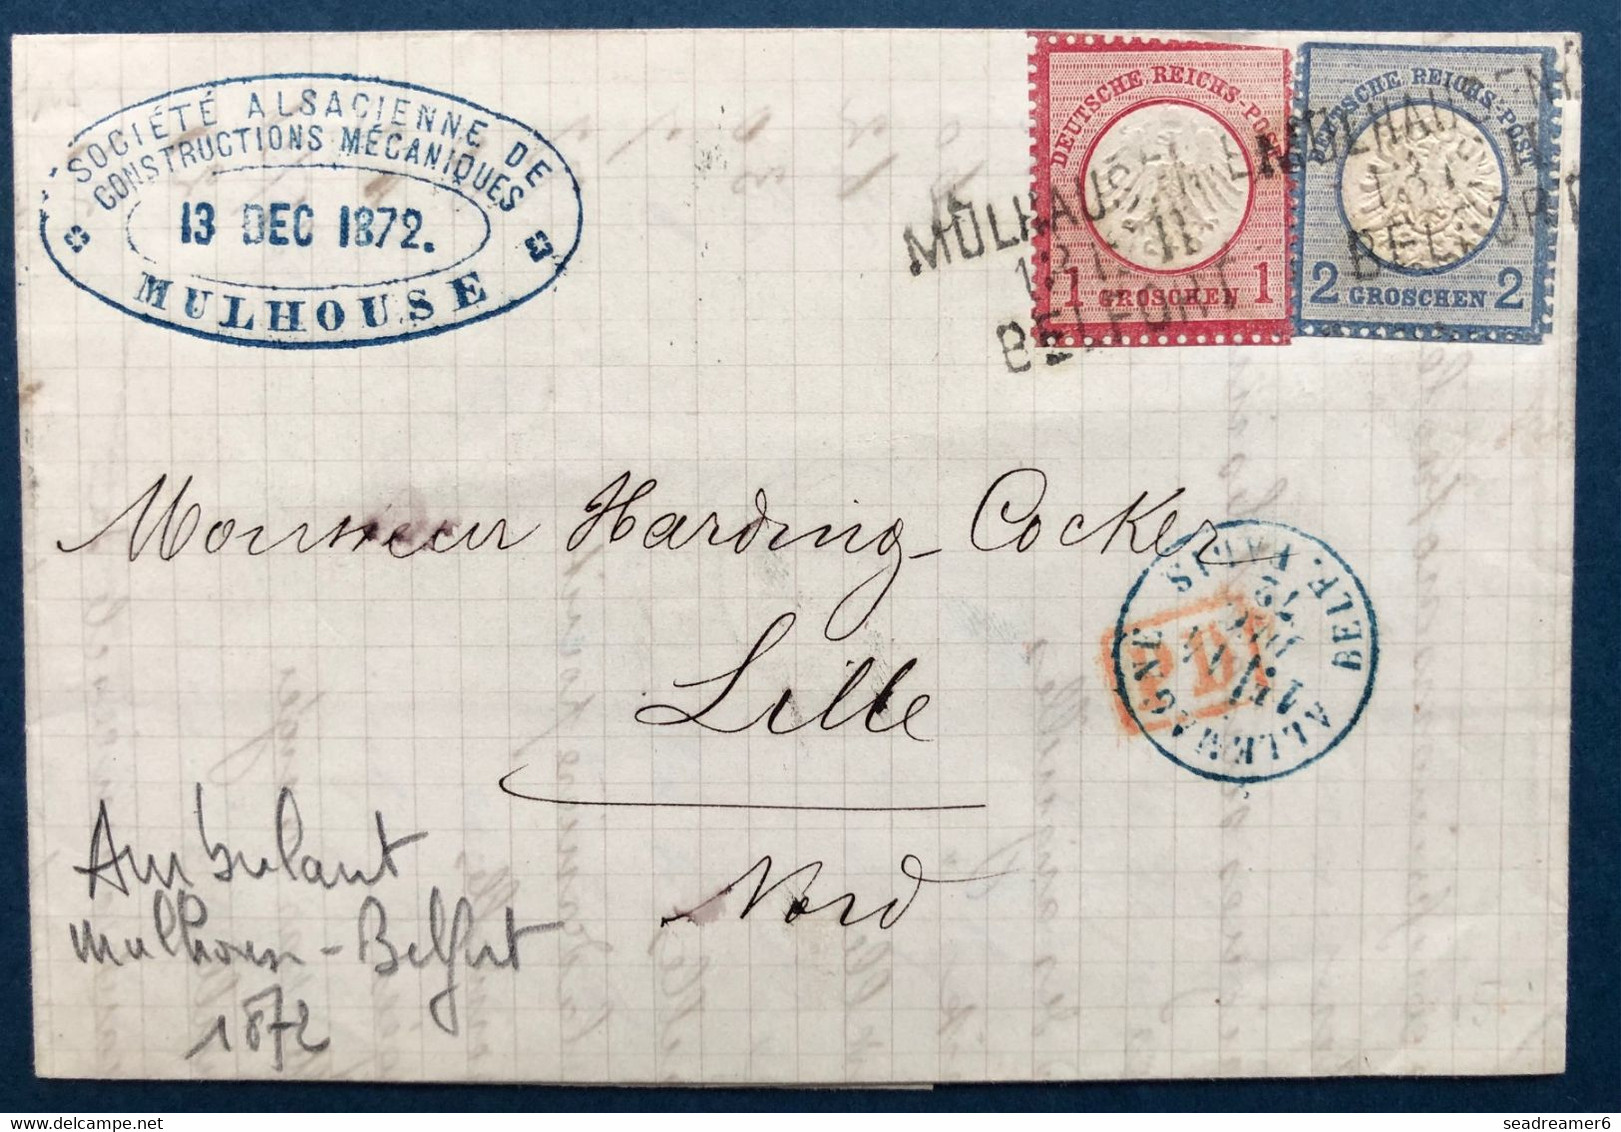 SOCIÉTÉ ALSACIENNE DE
CONSTRUCTIONS MÉCANIQUES
13 DEC 1872.
MULHOUSE
DEUTSCHE REICHS-POST
1 GROSCHEN 1
DEUTSCHE REICHS-POST
2 GROSCHEN 2
MÜLHAUSEN
13 12 II
BELFORT
MÜLHAUSEN
BELFORT
Monsieur Harding-Cocker
Lille
Nord
PD
ALLEMAGNE BELF. PARIS
72
Ambulant
Mulhouse-Belfort
1872
seadreamer6 © delcampe.net